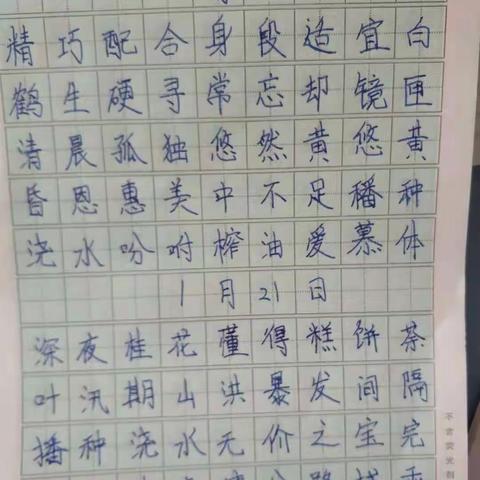 精巧配合身段适宜白
鹤生硬寻常忘却镜匣
清晨孤独悠然黄悠黄
昏恩惠美中不足播种
浇水吩咐榨油爱慕体
1月21日
深夜桂花懂得糕饼茶
叶汛期山洪暴发间隔
播种浇水无价之宝完
不含荧光剂